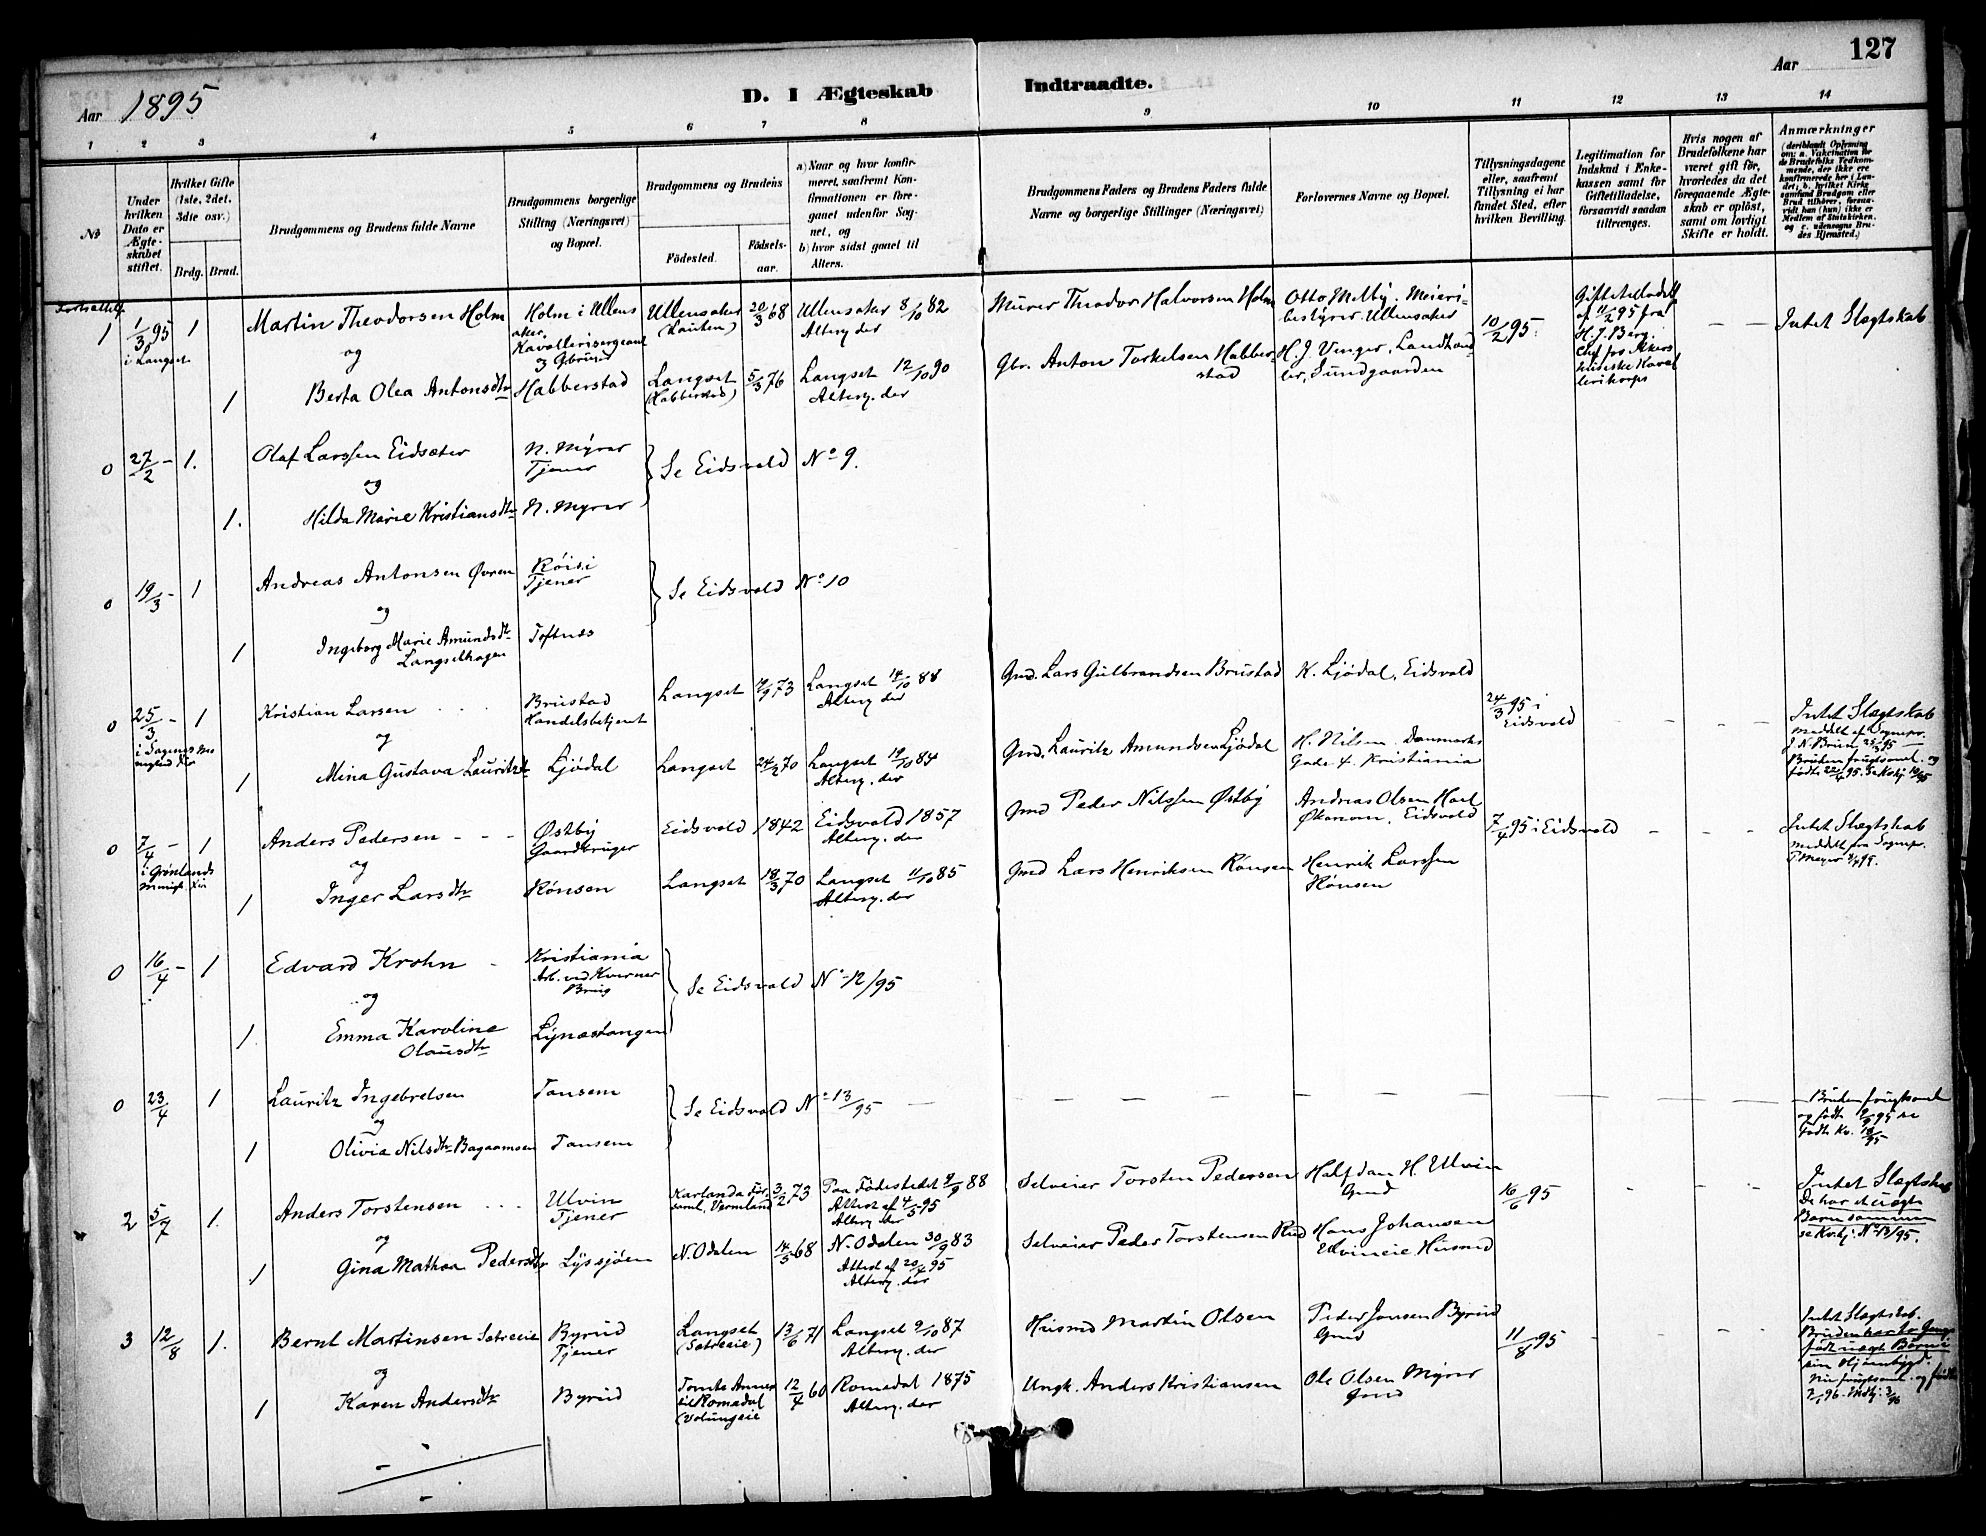 127
Aar
Aar 1895
D. I Ægteskab Indtraadte.
1 2 3 4 5 6 7 8 9 10 11 12 13 14
No
Under hvilken Dato er Ægteskabet stiftet.
Hvilket Gifte (1ste, 2det. 3dte osv.)
Brdg. Brud.
Brudgommens og Brudens fulde Navne
Brudgommens borgerlige Stilling (Næringsvei) og Bopæl.
Brudgommens og Brudens
Födested.
Födselsaar.
a) Naar og hvor konfirmeret, saafremt Konfirmationen er foregaaet udenfor Sognet, og
b) hvor sidst gaaet til Alters.
Brudgommens Faders og Brudens Faders fulde Navne og borgerlige Stillinger (Næringsvei)
Forlovernes Navne og Bopæl.
Tillysningsdagene eller, saafremt Tillysning ei har fundet Sted, efter hvilken Bevilling.
Legitimation for Indskud i Enkekassen samt for Giftetilladelse, forsaavidt saadan tiltrænges.
Hvis nogen af Brudefolkene har været gift för, hvorledes da det foregaaende Ægteskab er oplöst, samt om lovligt Skifte er holdt.
Anmærkninger
(deriblandt Oplysning om: a. Vakcination for de Brudefolks Vedkommende, der ikke ere konfirmerede her i Landet; b. hvilket Kirkesamfund Brudgom eller Brud tilhörer, forsaavidt han (hun) ikke er Medlem af Statskirken, og c. udensogns Brudes Hjemsted.)
1 1/3 95 1 Martin Theodorsen Holm Holm i Ullensaker, Kavallerisergeant Ullensaker 20/3 68 Ullensaker 8/10 82 Murer Theodor Halvorsen Holm Otto Melby. Meieribestyrer. Ullensaker 10/2 95. Giftetilladelse af 11/2 95 fra H. J. Berg — — Intet Slægtskab
i Langset og Alterg der
1 Berta Olea Antonsdtr Habberstad Langset (Habberstad) 5/3 76 Langset 12/10 90 Gbr. Anton Torkelsen Habberstad H. J. Vinger, Landhandler, Sundgaarden
Alterg. der
0 27/2 – 1. Olaf Larssen Eidsæter N. Myrer Tjener Se Eidsvold No 9.
og
1. Hilda Marie Kristiansdtr N. Myrer
0 19/3 – 1 Andreas Antonsen Øvren Röisi Tjener Se Eidsvold No 10
og
1 Ingeborg Marie Amundsdtr Toftnes
0 25/3 – 1 Kristian Larsen Brustad Handelsbetjent Langset 73 Langset 14/10 88 Gmd. Lars Gulbrandsen Brustad K. Ljödal, Eidsvold 24/3 95 i Eidsvold – – – Intet Slægtskab
og Alterg der meddelt af Sognepr.
1 Mina Gustava Lauritzdtr Ljödal Langset 24/2 70 Langset 19/10 84 Gmd. Lauritz Amundsen Ljödal H. Nilsen Danmarks Gade 4. Kristiania
Alterg. der
0 7/4 – 1 Anders Pedersen Østby Gaardbruger Eidsvold 1842 Eidsvold 1857 Gmd Peder Nilssen Østby Andreas Olsen Økonom, Eidsvold 7/4 95 i Eidsvold – – – Intet Slægtskab
i Grønlands og Alterg. der meddelt fra Sognepr.
1 Inger Larsdtr Rönsen Langset 18/3 70 Langset 11/10 85 Gmd Lars Henriksen Rönsen Henrik Larssen Rönsen
Alterg. der
0 16/4 – 1 Edvard Krohn Kristiania Arb. ved Kværner Brug Se Eidsvold No 12/95
og
1 Emma Karoline Olausdtr Lynæstangen
0 23/4 1 Lauritz Ingebretsen Tansem Se Eidsvold No 13/95 — — — — — — — Bruden frugtsomel.
og
1 Olivia Nilsdtr Tansem
2 5/7 1. Anders Torstensen Ulvin Tjener Vermland 3/2 73 Paa Födestedet 9/9 88 Selveier Torsten Pedersen Halfdan H. Ulvin Gmd 16/6 95 – – – Intet Slægtskab
og Attest af 4/5 95 Alterg. der De har et uægte Barn sammen
1 Gina Mathea Pedersdtr Lysjöen N. Odalen 14/5 68 N. Odalen 30/9 83 Selveier Peder Torstensen Rud Hans Johansen Ulvineie Husmd
Attest af 20/4 95 Alterg. der
3 12/8 1. Bernt Martinsen Sætreeie Byrud Tjener Langset (Sætreeie) 13/6 71 Langset 9/10 87 Husmd Martin Olsen Peder Jensen Byrud Gmd 11/8 95 – – – Intet Slægtskab.
og Alterg. der
1 Karen Andersdtr Byrud Romedal 12/4 60 Romedal 1875 Ungk. Anders Kristiansen Ole Olsen Myrer Gmd
Alterg. der